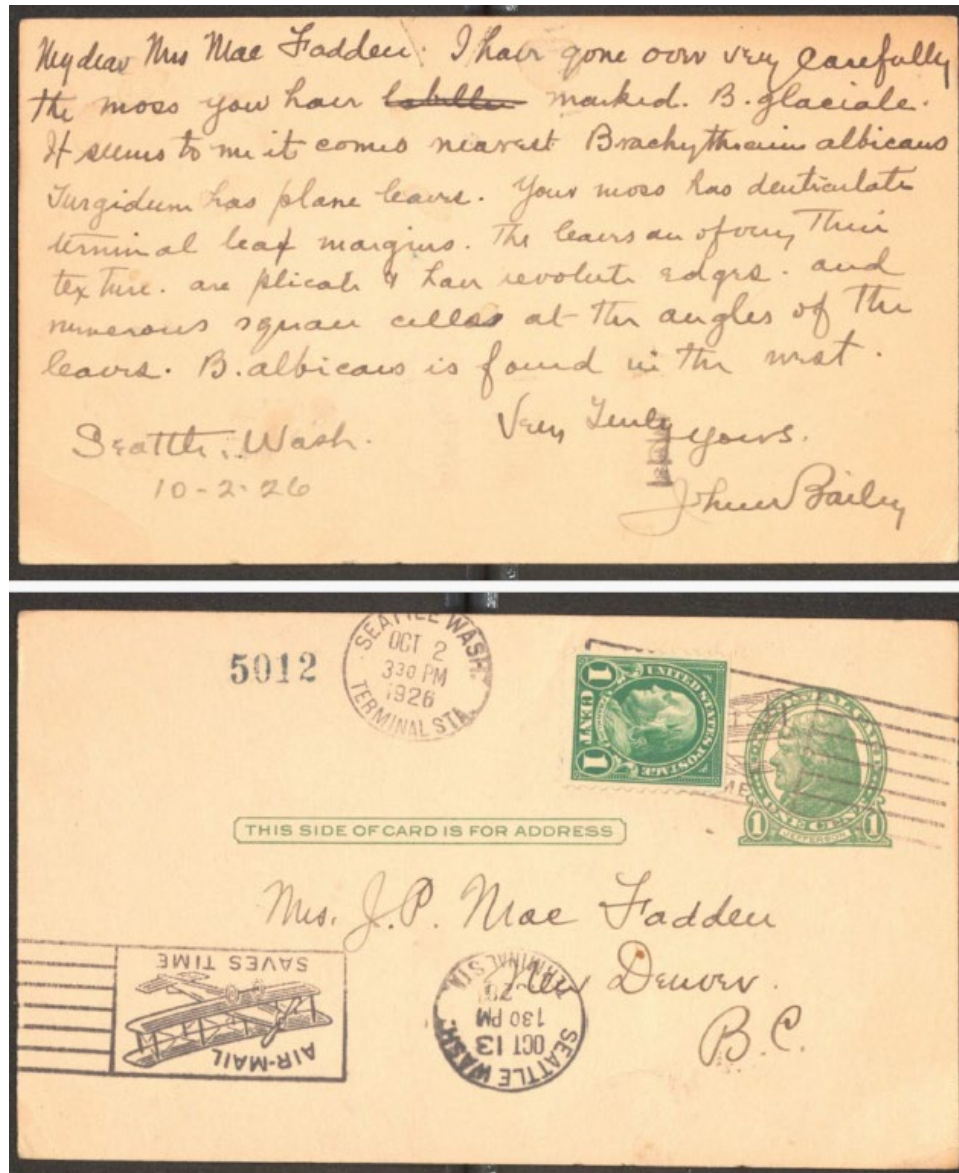 My dear Mrs Mac Fadden. I have gone over very carefully
the moss you have labelled marked. B. glaciale.
It seems to me it comes nearest Brachythecium albicans
Turgidum has plane leaves. Your moss has denticulate
terminal leaf margins. The leaves are of very thin
texture. are plicate & have revolute edges. and
numerous square cells at the angles of the
leaves. B. albicans is found in the west.
Very Truly yours.
Seattle, Wash.
10-2-26
John Bailey
5012
SEATTLE WASH.
OCT 2
330 PM
1926
TERMINAL STA.
UNITED STATES POSTAGE
1 CENT 1
1 ONE CENT 1
JEFFERSON
THIS SIDE OF CARD IS FOR ADDRESS
Mrs. J. P. Mac Fadden
New Denver.
B.C.
AIR-MAIL
SAVES TIME
SEATTLE WASH.
OCT 13
130 PM
TERMINAL STA.